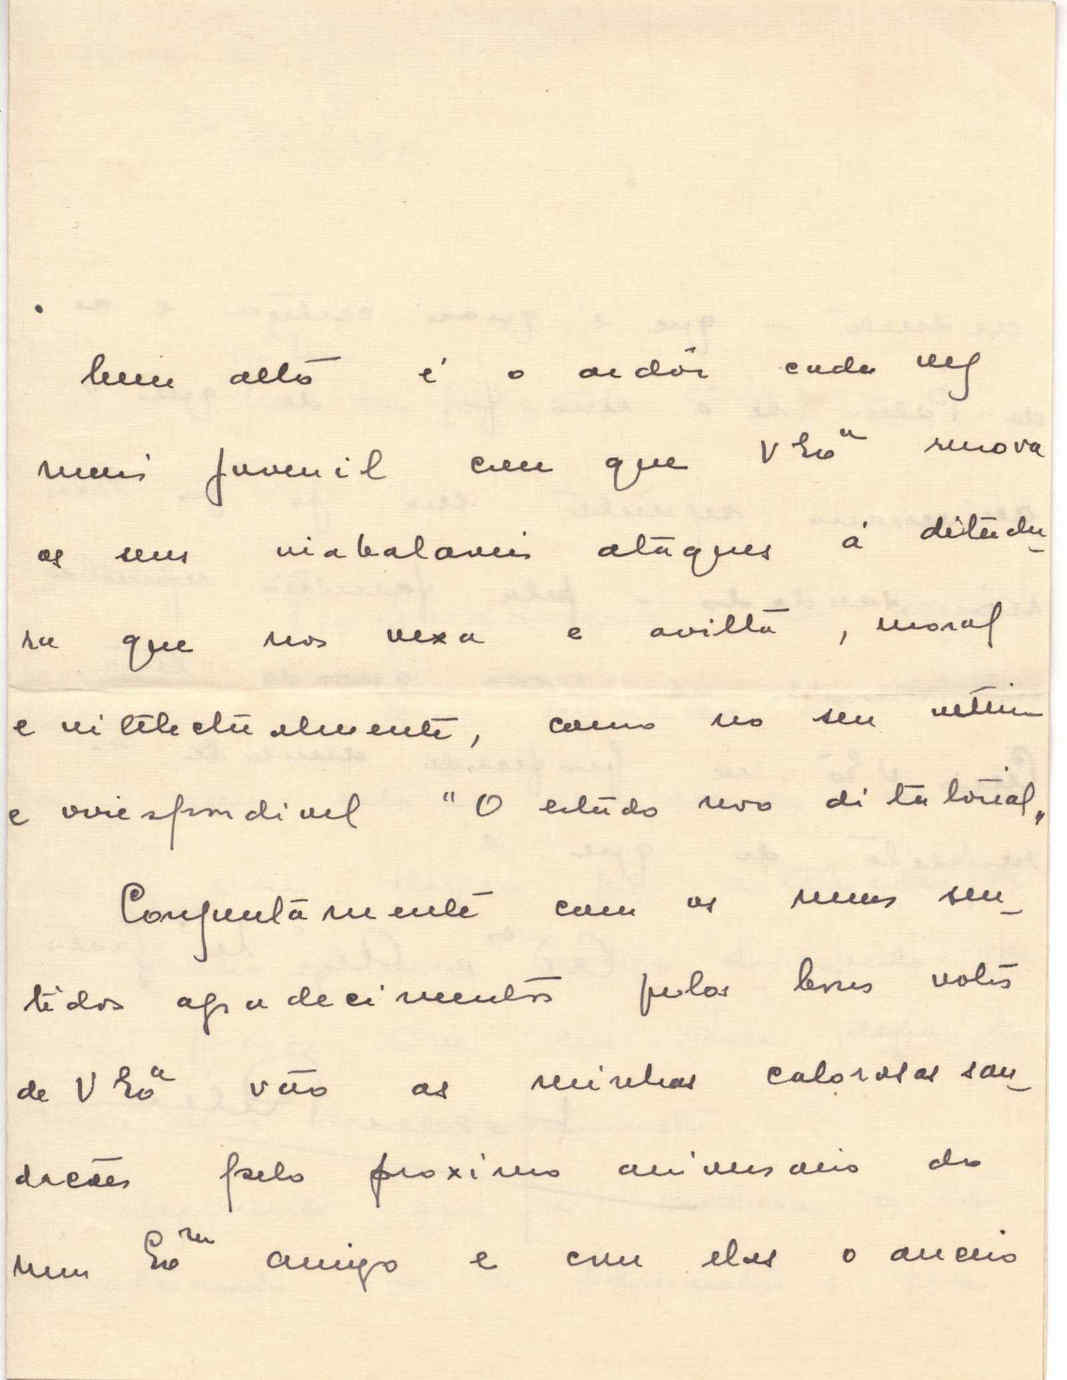 bem alto é o ardôr cada vez
mais juvenil com que V Exª renova
os seus inabalaveis ataques á ditadu-
ra que nos vexa e aviltа, moral
e intelectualmente, como no seu ultimo
e irrespondivel "O estado novo ditatorial„
Conjuntamente com os meus sen-
tidos agradecimentos pelos bons votos
de V Exª vão as minhas calorosas sau-
dacões pelo proximo aniversario do
meu Exmo amigo e com elas o anceio